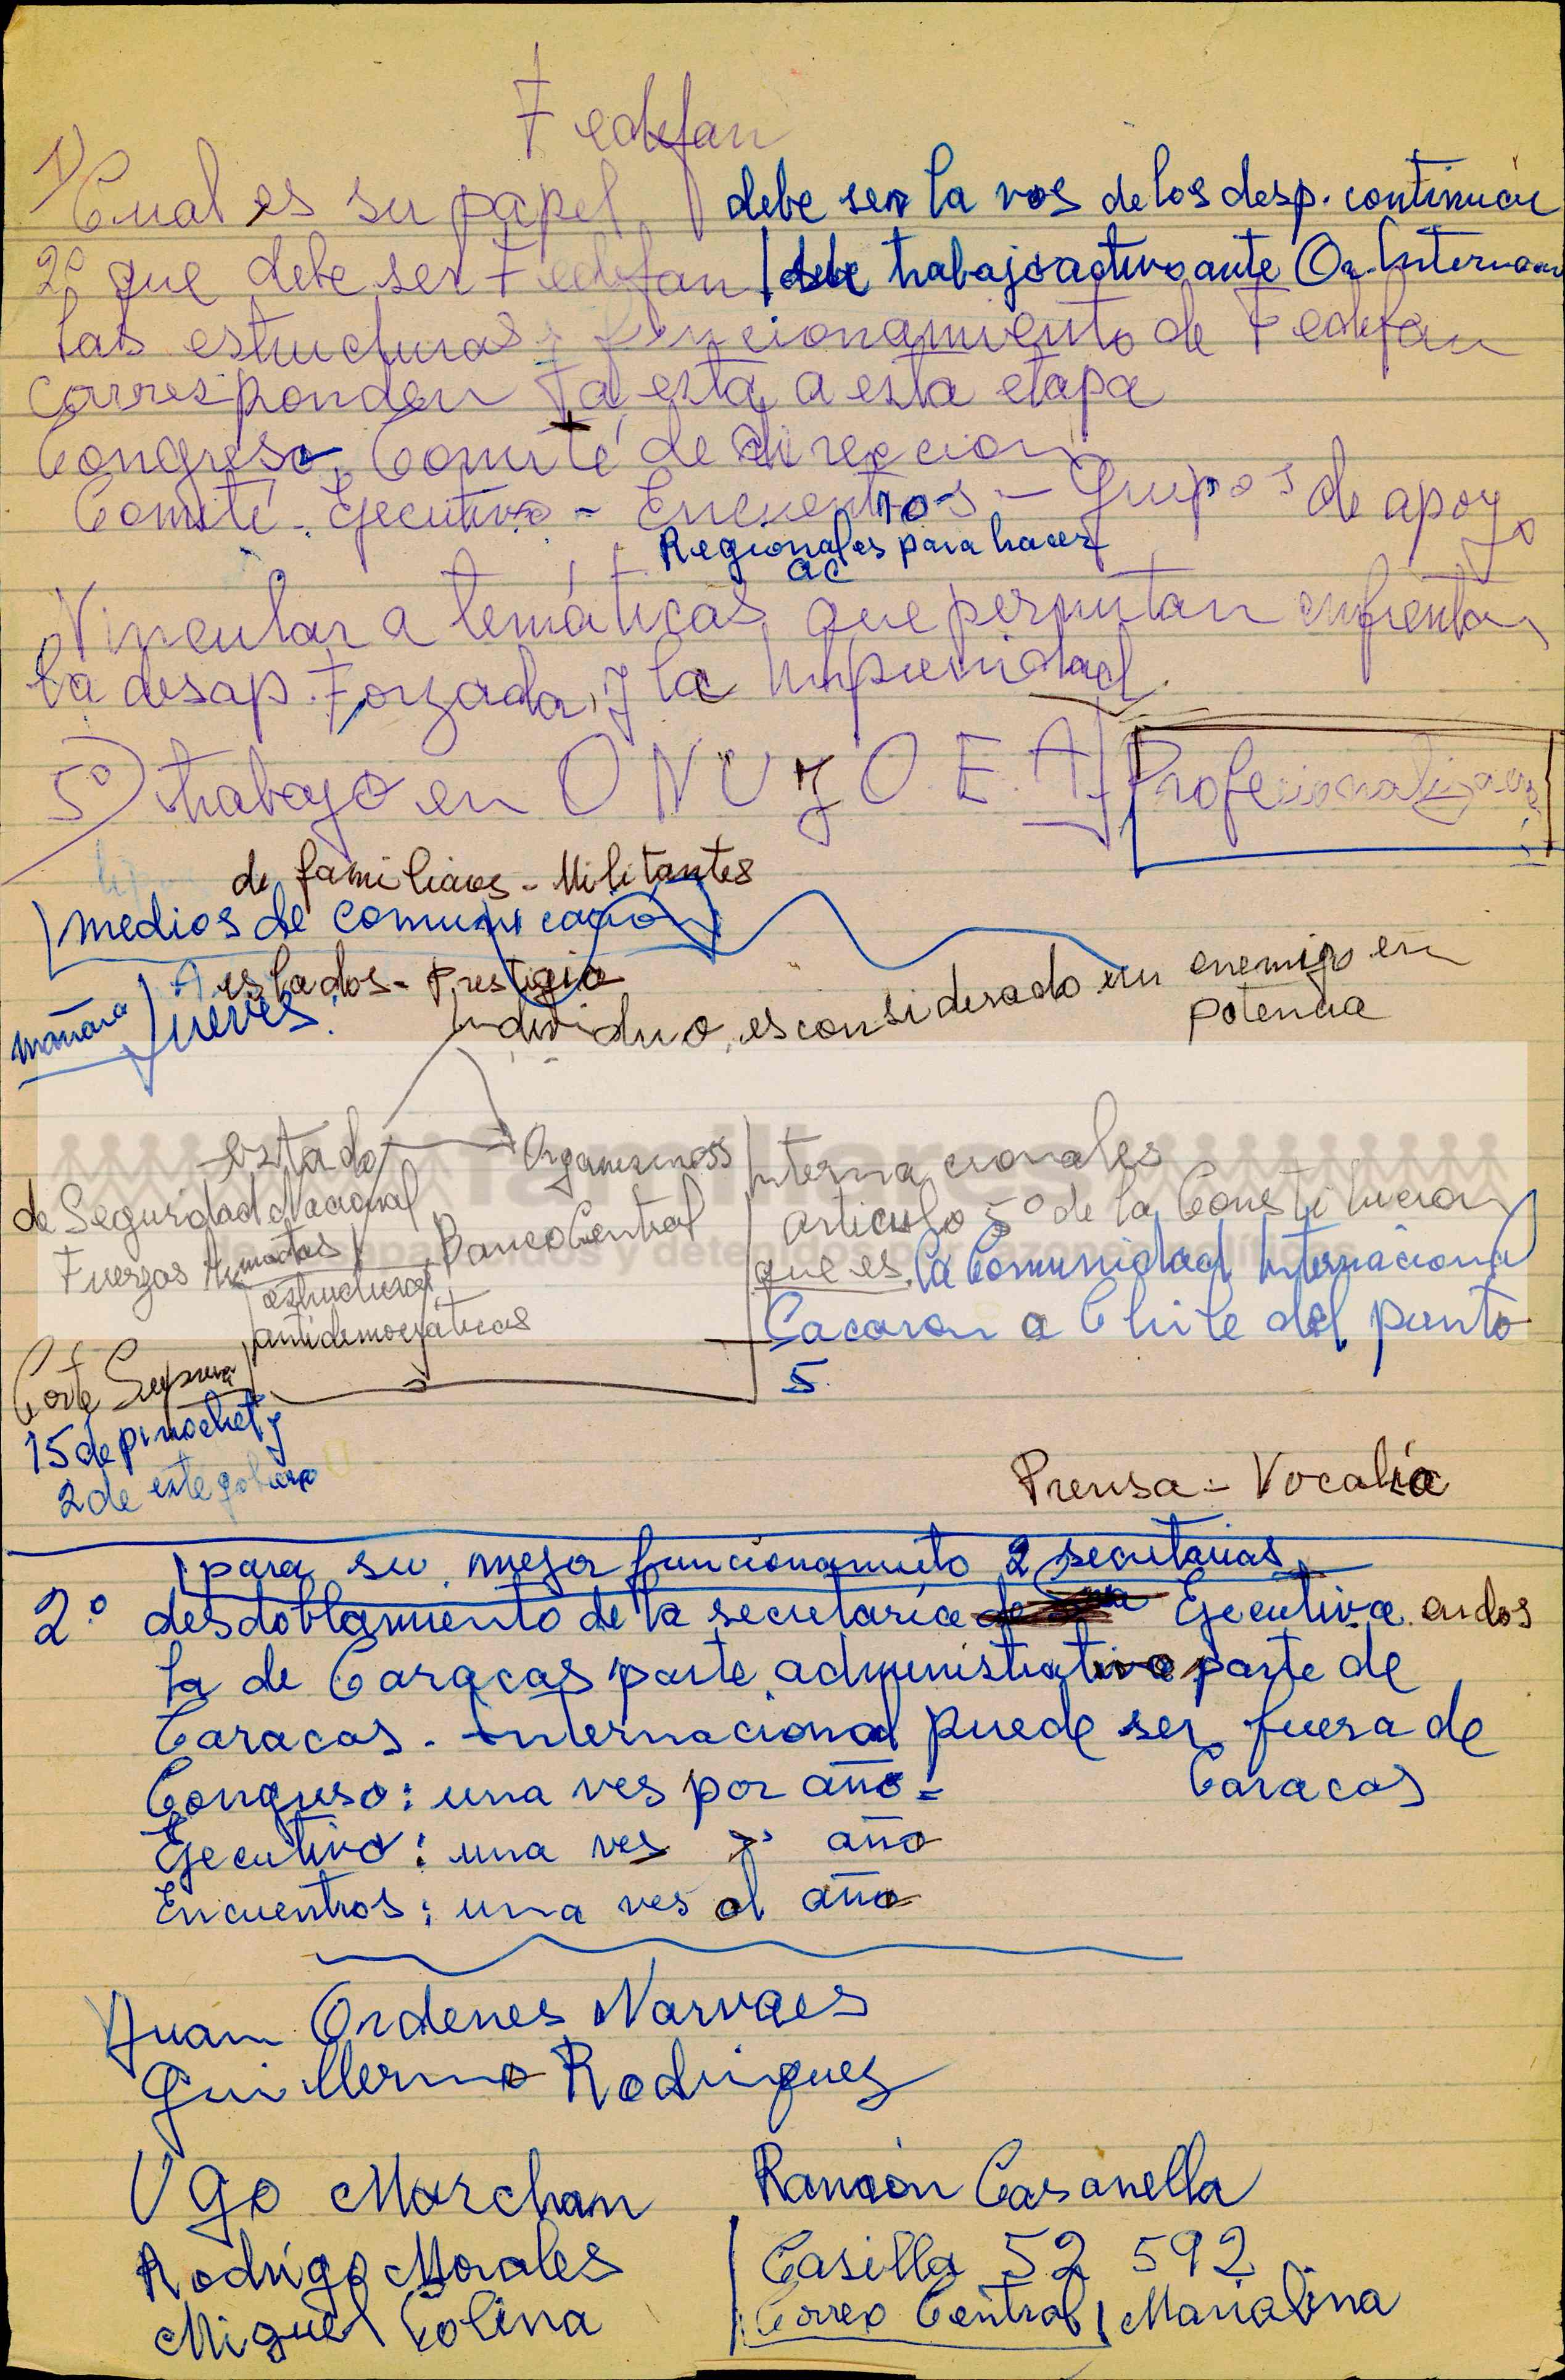 Fedefan
1) Cual es su papel debe ser la vos de los desp. continuar
2º que debe ser Fedefan debe trabajo activo ante Or. Internacio
las estructuras funcionamiento de Fedefan
corresponden a esta etapa
Congreso, Comité de dirección
Comité. Ejecutivo - Encuentros - Grupos de apoyo
Regionales para hacer
ac
Vincular a temáticas que permitan enfrentar
la desap. Forzada, y la Impunidad.
5º) trabajo en ONU y O.E.A
de familiares - Militantes
medios de comunicación
estados - Prestigio
mañana Jueves.
Individuo, es considerado un enemigo en
potencia
estado Organismos Internacionales
de Seguridad Nacional Banco Central articulo 5º de la Constitucion
Fuerzas Armadas que es la Comunidad Internacional
estructuras
antidemocráticas
Sacaron a Chile del punto
5.
Corte Suprema
15 de pinochet y
2 de este gobierno
familiares
de desaparecidos y detenidos por razones políticas
Prensa - Vocalía
para su mejor funcionamiento 2 secretarias
2º desdoblamiento de la secretaría Ejecutiva en dos
la de Caracas parte administrativa parte de
Caracas. Internacional puede ser fuera de
Caracas
Congreso: una ves por año =
Ejecutivo: una ves " año
Encuentros: una ves al año
Juan Ordenes Narvaes
Guillermo Rodriguez
Ugo Marchan Ramón Casanella
Rodrigo Morales Casilla 52 592
Miguel Colina Correo Central Marialina